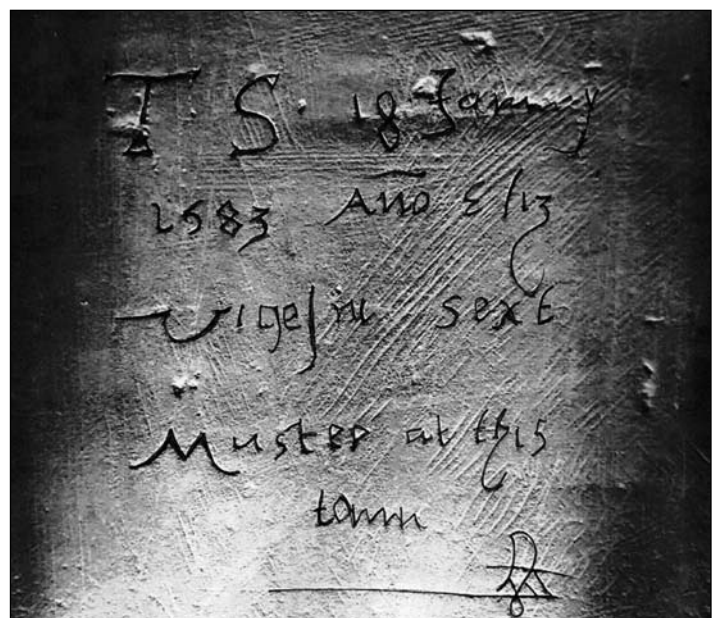 T S · 18 January
1583 Año Eliz
Vigesim sext
Muster at this
town